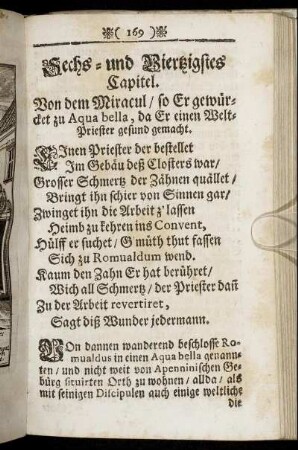 ( 169 )
Sechs- und Viertzigstes
Capitel.
Von dem Miracul / so Er gewür-
cket zu Aqua bella, da Er einen Welt-
Priester gesund gemacht.
EInen Priester der bestellet
Im Gebäu deß Closters war /
Grosser Schmertz der Zähnen quället /
Bringt ihn schier von Sinnen gar /
Zwinget ihn die Arbeit z'lassen
Heimb zu kehren ins Convent,
Hülff er suchet / G'müth thut fassen
Sich zu Romualdum wend.
Kaum den Zahn Er hat berühret /
Wich all Schmertz / der Priester dast
Zu der Arbeit revertiret,
Sagt diß Wunder jedermann.
VOn dannen wanderend beschlosse Ro-
mualdus in einen Aqua bella genann-
ten / und nicht weit von Apenninischen Ge-
bürg situirten Orth zu wohnen / allda / als
mit seinigen Discipulen auch einige weltliche
die